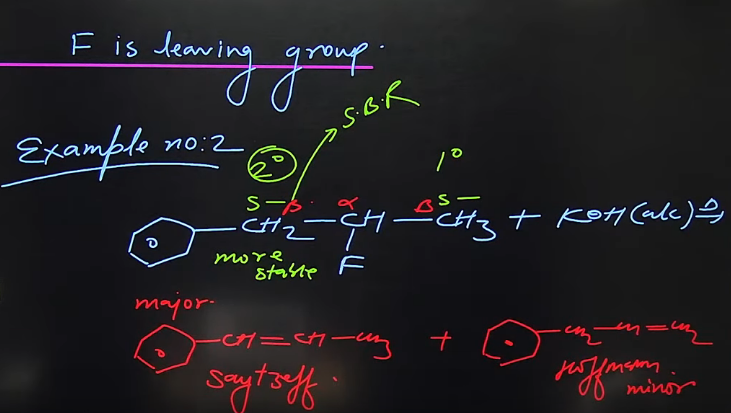 F is leaving group.
S.B.R
Example no:2
2°
1°
δ− β α β δ−
CH₂ — CH — CH₃ + KOH(alc) Δ⇒
more stable
F
major.
CH = CH — CH₃ + CH₂ — CH = CH₂
Saytzeff.
Hoffmann
minor